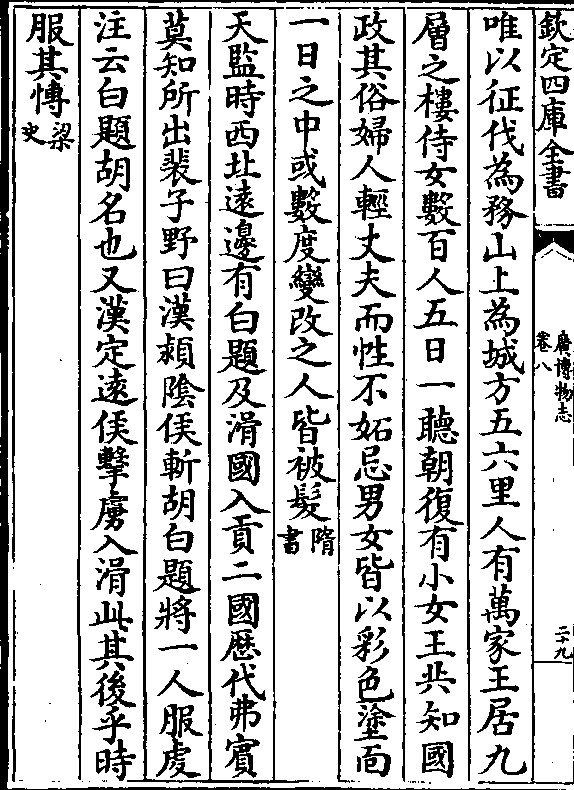 欽定四庫全書
廣博物志
卷八
二十九
唯以征伐為務山上為城方五六里人有萬家王居九
層之樓侍女數百人五日一聽朝復有小女王共知國
政其俗婦人輕丈夫而性不妬忌男女皆以彩色塗面
一日之中或數度變改之人皆被髮隋書
天監時西北遠邊有白題及滑國入貢二國歴代弗賓
莫知所出裴子野曰漢潁陰侯斬胡白題將一人服䖍
注云白題胡名也又漢定逺侯擊虜入滑此其後乎時
服其愽梁史